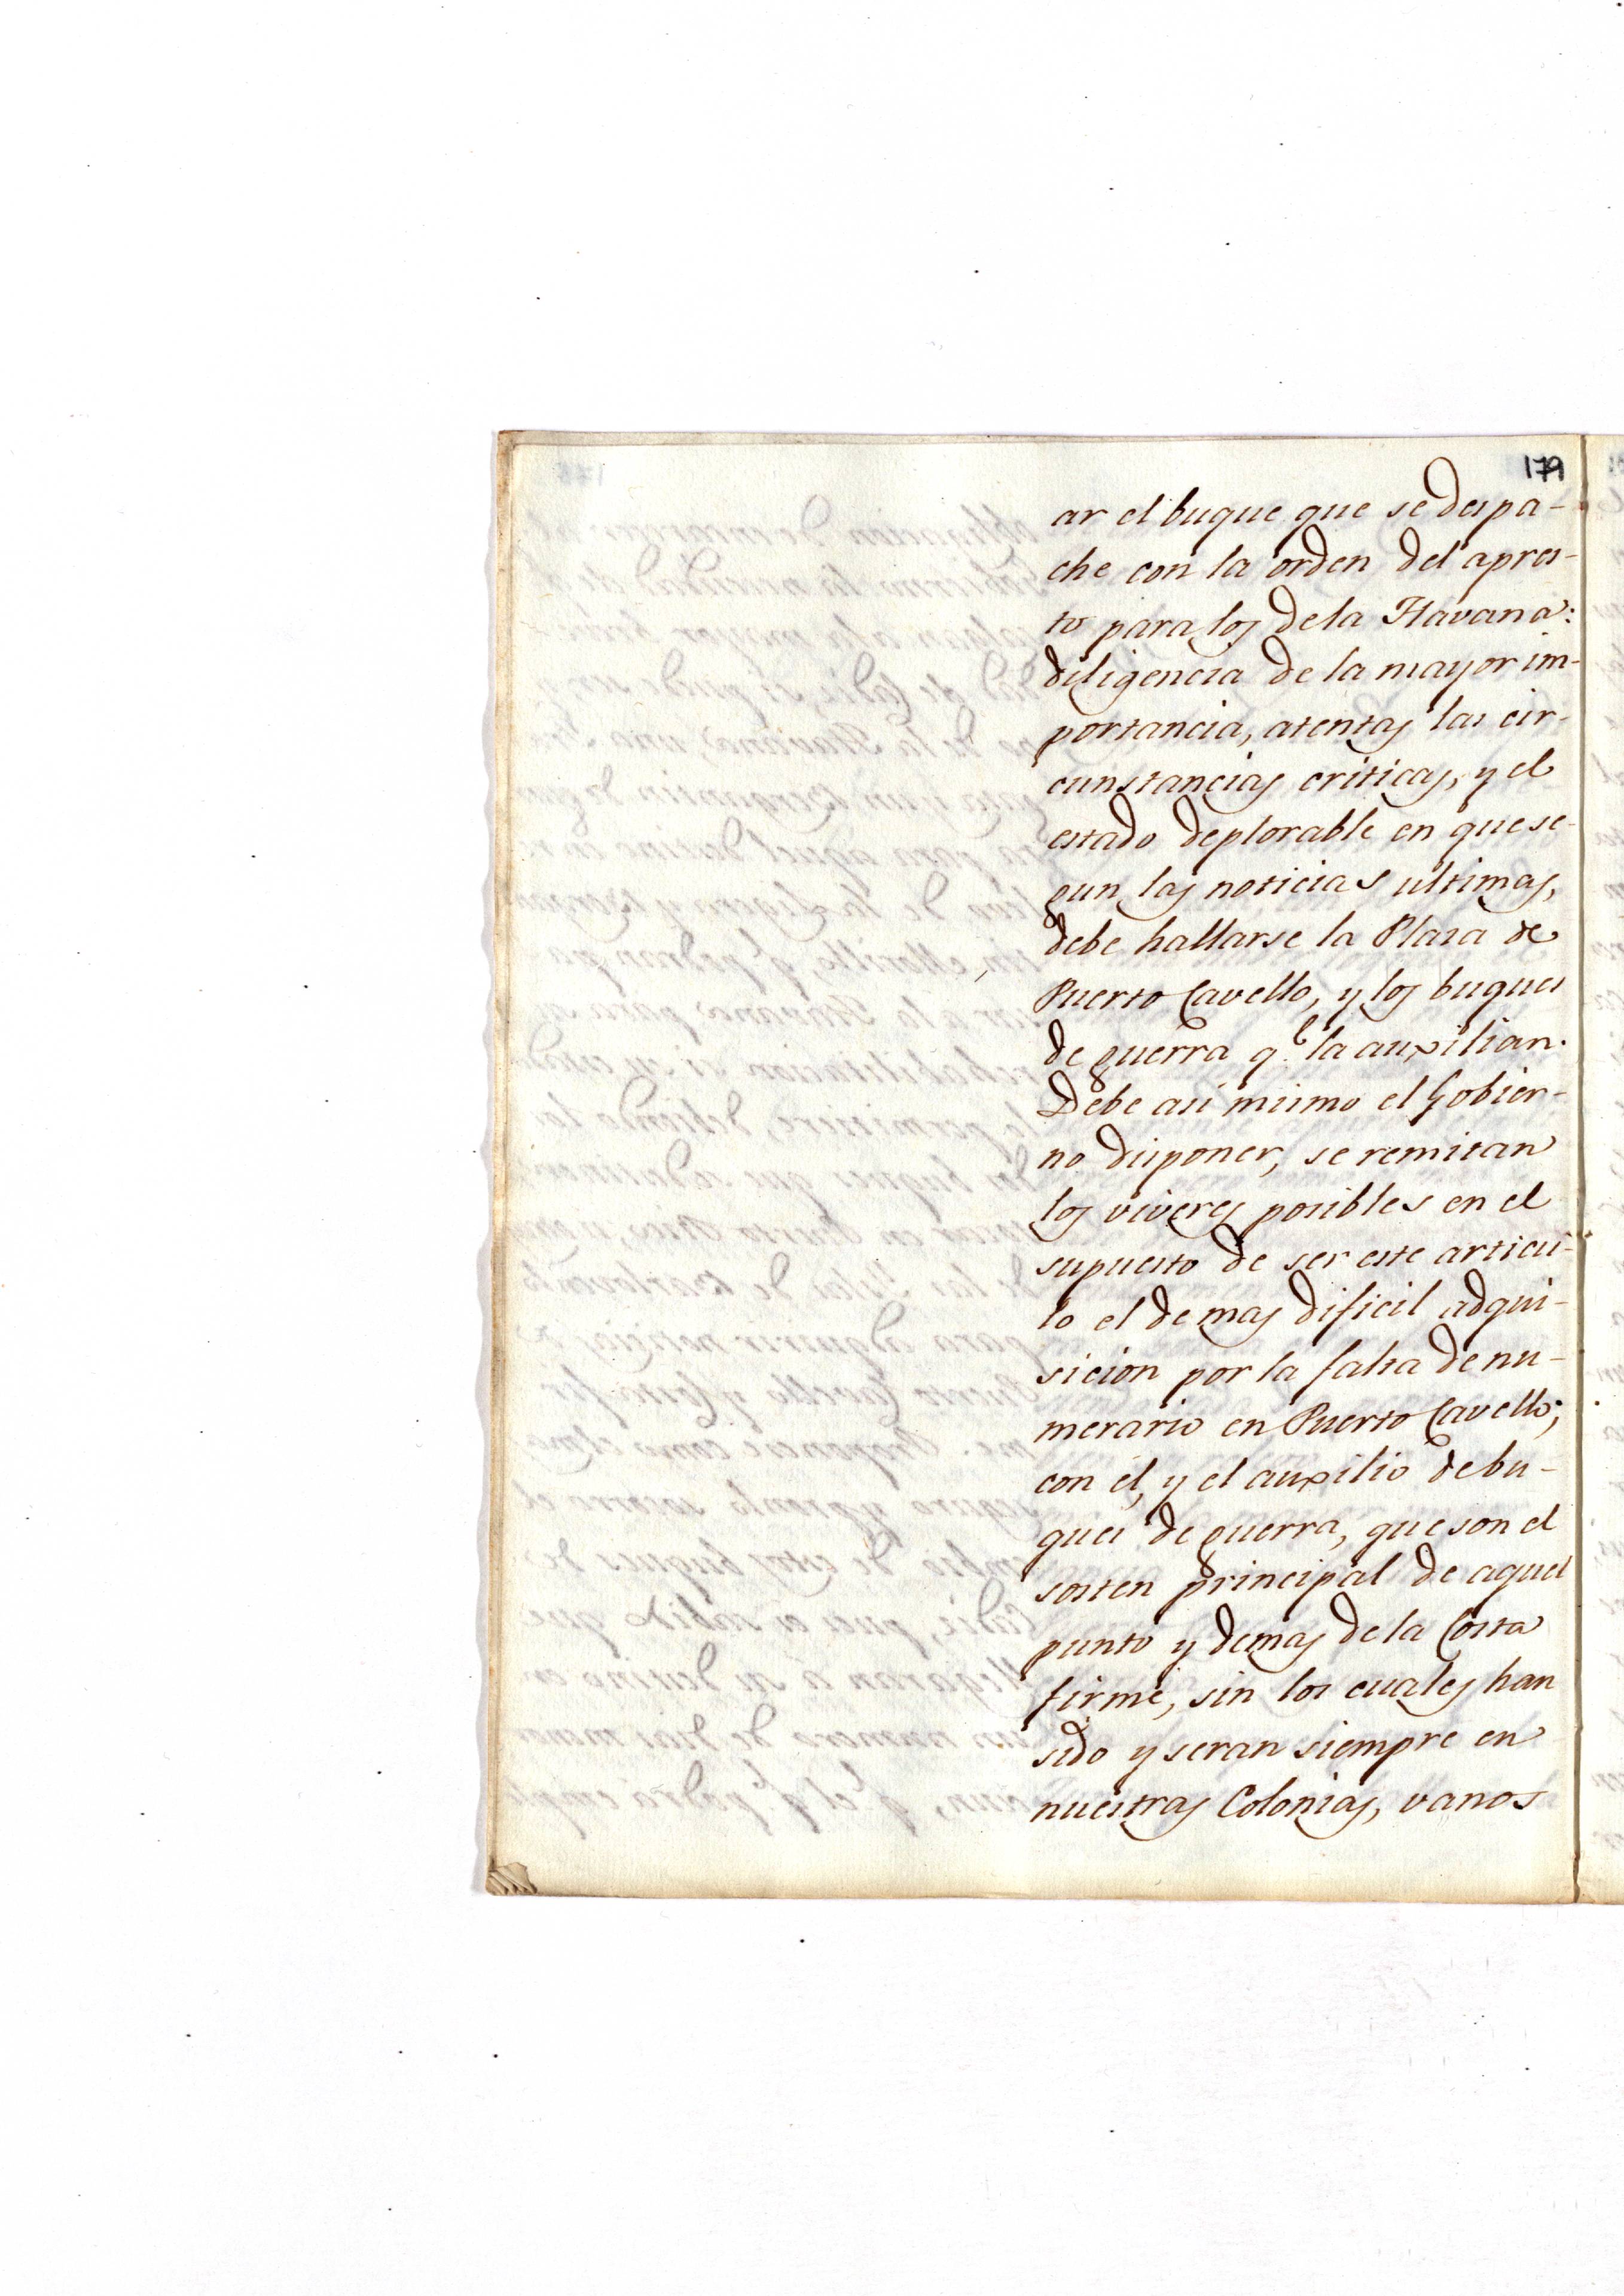 179
ar el buque que se despa-
che con la orden del apres-
to para los de la Havana:
diligencia de la mayor im-
portancia, atentas las cir-
cunstancias criticas, y el
estado deplorable en que se-
gun las noticias ultimas,
debe hallarse la Plaza de
Puerto Cavello, y los buques
de guerra q.e la auxilian.
Debe asi mismo el Gobier-
no disponer, se remitan
los viveres posibles en el
supuesto de ser este articu-
lo el de mas dificil adqui-
sicion por la falta de nu-
merario en Puerto Cavello;
con él, y el auxilio de bu-
ques de guerra, que son el
sosten principal de aquel
punto y demas de la Costa
firme, sin los cuales han
sido y seran siempre en
nuestras Colonias, vanos